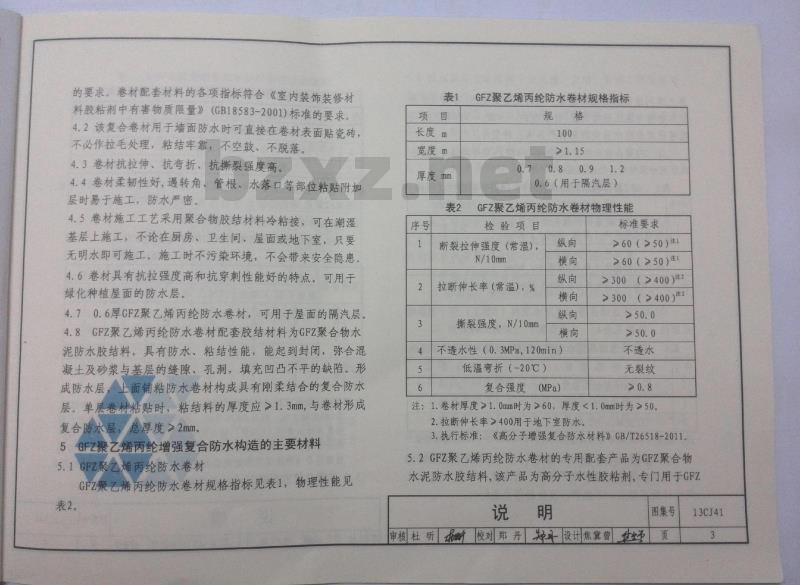 的要求。卷材配套材料的各项指标符合《室内装饰装修材
料胶粘剂中有害物质限量》(GB18583-2001)标准的要求。
4.2 该复合卷材用于墙面防水时可直接在卷材表面贴瓷砖，
不必作拉毛处理，粘结牢靠，不空鼓、不脱落。
4.3 卷材抗拉伸、抗弯折、抗撕裂强度高。
4.4 卷材柔韧性好，遇转角、管根、水落口等部位粘贴附加
层时易于施工，防水严密。
4.5 卷材施工工艺采用聚合物胶结材料冷粘接，可在潮湿
基层上施工，不论在厨房、卫生间、屋面或地下室，只要
无明水即可施工。施工时不污染环境，不会带来安全隐患。
4.6 卷材具有抗拉强度高和抗穿刺性能好的特点，可用于
绿化种植屋面的防水层。
4.7 0.6厚GFZ聚乙烯丙纶防水卷材，可用于屋面的隔汽层。
4.8 GFZ聚乙烯丙纶防水卷材配套胶结材料为GFZ聚合物水
泥防水胶结料，具有防水、粘结性能，能起到封闭，弥合混
凝土及砂浆与基层的缝隙、孔洞，填充凹凸不平的缺陷。形
成防水层。上面铺粘防水卷材构成具有刚柔结合的复合防水
层。单层卷材粘贴时，粘结料的厚度应≥1.3mm，与卷材形成
复合防水层，总厚度≥2mm。
5 GFZ聚乙烯丙纶增强复合防水构造的主要材料
5.1 GFZ聚乙烯丙纶防水卷材
GFZ聚乙烯丙纶防水卷材规格指标见表1，物理性能见
表2。
表1 GFZ聚乙烯丙纶防水卷材规格指标
项 目 规 格
长度 m 100
宽度 m ≥1.15
厚度 mm 0.7 0.8 0.9 1.2
0.6（用于隔汽层）
表2 GFZ聚乙烯丙纶防水卷材物理性能
序号 检 验 项 目 标准要求
1 断裂拉伸强度（常温），N/10mm 纵向 ≥60（≥50）注1
横向 ≥60（≥50）注1
2 拉断伸长率（常温），% 纵向 ≥300（≥400）注2
横向 ≥300（≥400）注2
3 撕裂强度，N/10mm 纵向 ≥50.0
横向 ≥50.0
4 不透水性（0.3MPa,120min） 不透水
5 低温弯折（-20℃） 无裂纹
6 复合强度 (MPa) ≥0.8
注：1.卷材厚度≥1.0mm时为≥60，厚度<1.0mm时为≥50。
2.拉断伸长率≥400用于地下室防水。
3.执行标准：《高分子增强复合防水材料》GB/T26518-2011。
5.2 GFZ聚乙烯丙纶防水卷材的专用配套产品为GFZ聚合物
水泥防水胶结料，该产品为高分子水性胶粘剂，专门用于GFZ
说 明 图集号 13CJ41
审核 杜昕 校对 郑丹 设计 焦冀曾 页 3
bzxz.net